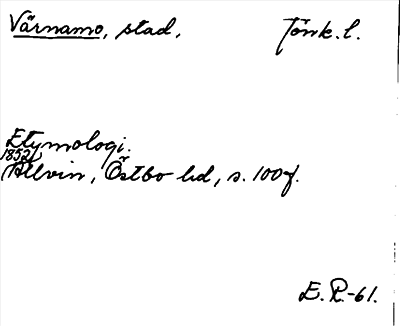 Värnamo, stad, Jönk. l.
Etymologi.
1852
Allvin, Östbo hd, s. 100 f.
E. R.-61.